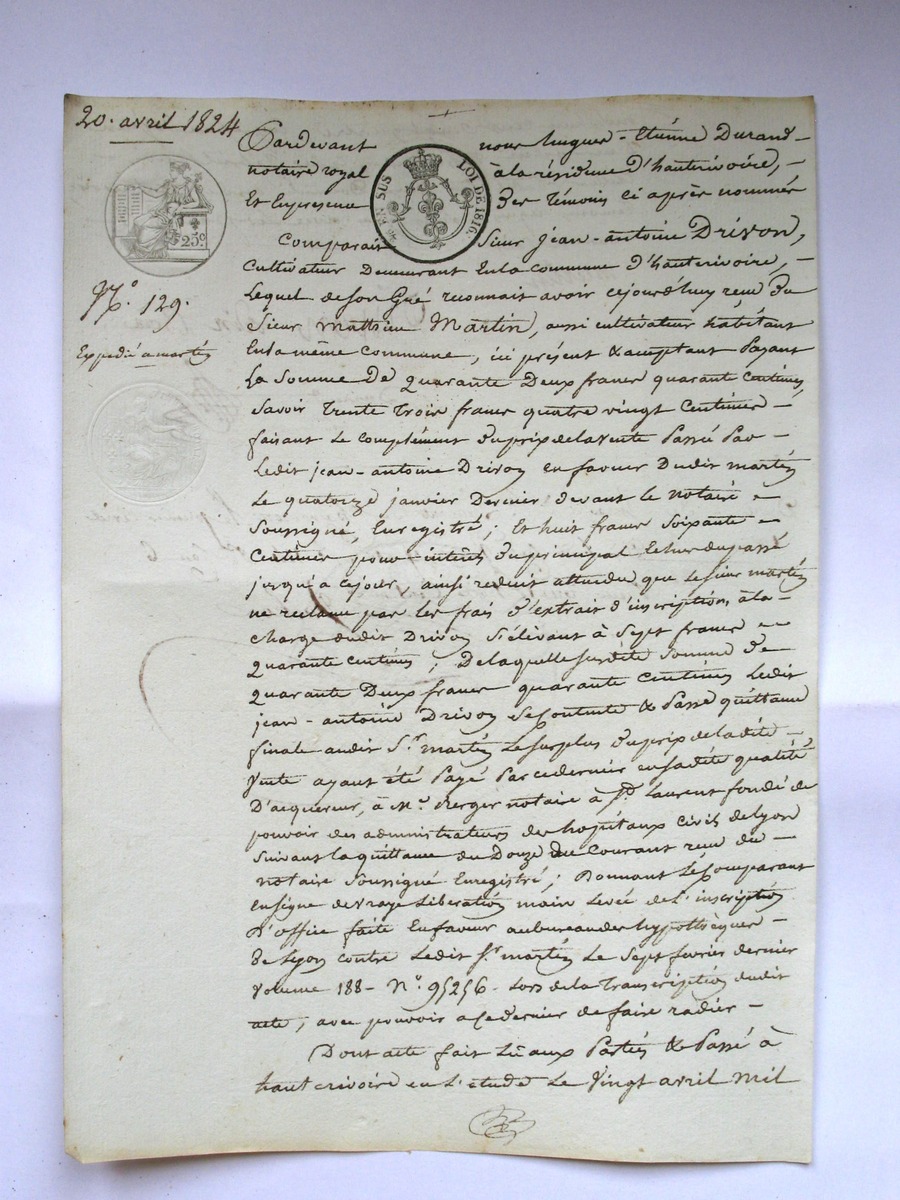 20. avril 1824
Pardevant nous hugues-Etiénne Durand-
notaire royal à la résidence D'hauterivoire, -
Et En presence Des Témoins ci après nommés
EN SUS LOI DE 1816.
25c
Comparait Sieur Jean-antoine Drivon,
Cultivateur Demeurant En la commune D'hauterivoire, -
N.° 129.
Lequel de son Gré reconnait avoir cejourd'huy reçu Du
Sieur matthieu Martin, aussi cultivateur habitant
Expédié a martin
En la même commune, ici présent & acceptant Payant
La Somme De quarante Deux francs quarante centimes,
Savoir Trente Trois francs quatre vingt Centimes -
faisant Le complément Du prix de la vente Passée Par -
Ledit jean-antoine Drivon en faveur Dudit martin
Le quatorze janvier Dernier devant le notaire
Soussigné, Enregistré; Et huit francs Soixante
Centimes pour intérêt du principal Echus du passé
jusqu'a cejour, ainsi reduit attendu que Le Sieur martin
ne reclame pas les frais D'extrait d'inscription, à la -
charge dudit Drivon S'élevant à Sept francs
quarante centimes; De laquelle susdite Somme De
quarante Deux francs quarante centimes Ledit
jean-antoine Drivon Se contente & Passe quittance
finale audit S.r martin Le surplus Du prix de la dite -
Vente ayant été Payé Par ce dernier en sa dite qualité
D'acquereur, à M.e Berger notaire à S.t Laurent fondé de
pouvoir des administrateurs des hopitaux civils de Lyon
Suivant la quittance du Douze du Courant reçue du -
notaire Soussigné Enregistré; Donnant Le Comparant
En signe de vraye Libération main Levée de L'inscription
D'office faite En sa faveur au bureau des hypothèques -
De Lyon contre Ledit S.r martin Le Sept février dernier
Volume 188 - N.° 95256 - Lors de la Transcription dudit
acte, avec pouvoir a ce dernier de faire radier -
Dont acte fait Lu aux Parties & Passé à
hauterivoire en L'étude Le Vingt avril Mil